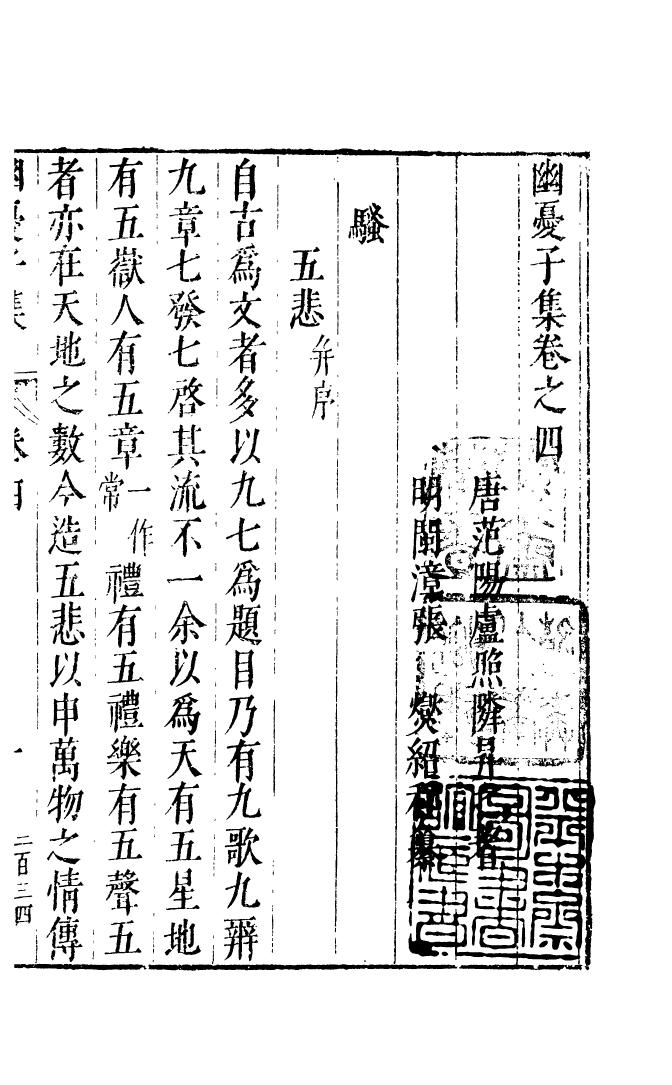 幽憂子集卷之四
唐范陽盧照隣昇之著
明閩漳張燮紹和纂
騷
五悲 并序
自古爲文者多以九七爲題目乃有九歌九辯
九章七發七啓其流不一余以爲天有五星地
有五嶽人有五章 一作常 禮有五禮樂有五聲五
者亦在天地之數今造五悲以申萬物之情傳
幽憂子集 卷四 一 二百三四